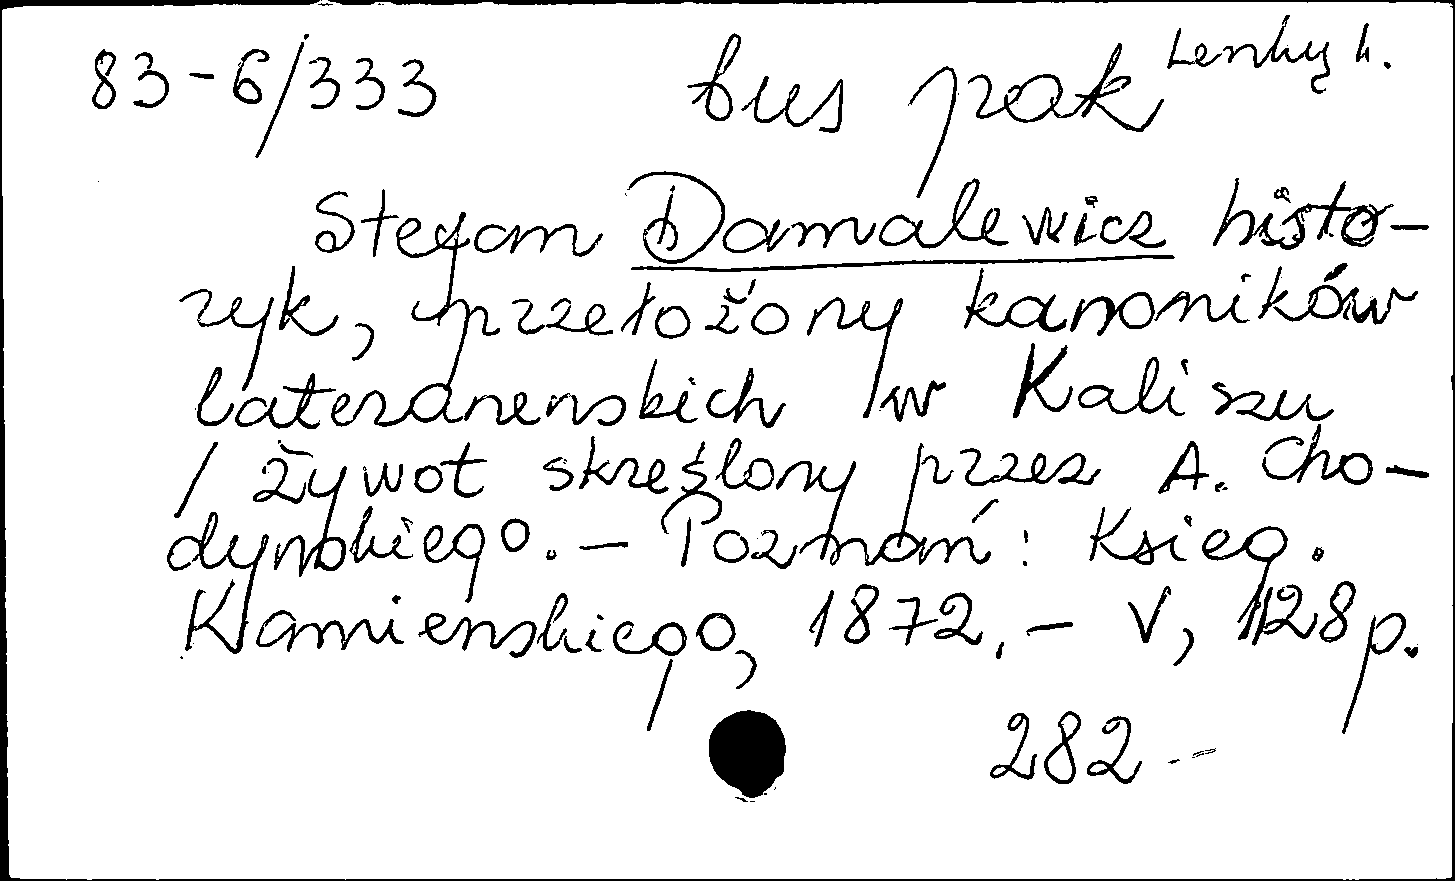 83-6/333 bus pak Lenkų k.
Stefan Damalewicz histo-
ryk, przełożony kanoników
lateranenskich w Kaliszu
/ żywot skreślony przez A. Cho-
dynskiego. – Poznań: Ksieg.
Kamienskiego, 1872. – V, 128 p.
282 –